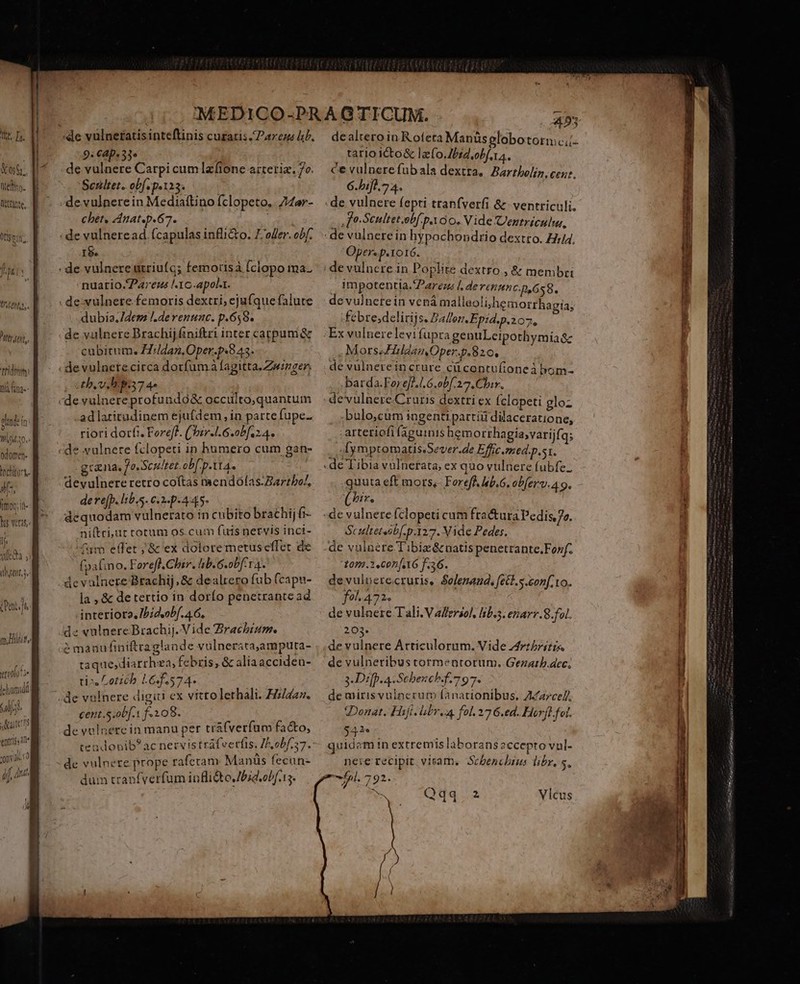 MEDICO-PRACTICUM. 493
de vulneratis intestinis curatis. Pareus lib.
9. cap. 33.
de vulnere Carpi cum læsione arteriæ. Jo.
Scultet. obs. p. 123.
de vulnere in Mediastino sclopeto. Mar-
chet. Anat. p. 67.
de vulnere ad scapulas inflicto. Foller. obs.
18.
de vulnere utriusq; femoris à sclopo ma-
nuario. Pareus l. 10. apol. 1.
de vulnere femoris dextri, ejusque salute
dubia. Idem l. de renunc. p. 658.
de vulnere Brachij sinistri inter carpum &
cubitum. Hildan. Oper. p. 843.
de vulnere circa dorsum à sagitta. Zwinger.
th. v. h. p. 374.
de vulnere profundo & occulto, quantum
ad latitudinem ejusdem, in parte supe-
riori dorsi. Forest. Chir. l. 6. obs. 24.
de vulnere sclopeti in humero cum gan-
græna. Jo. Scultet. obs. p. 114.
de vulnere retro costas mendosas. Barthol.
de resp. lib. 5. c. 2. p. 445.
de quodam vulnerato in cubito brachij si-
nistri, ut totum os cum suis nervis inci-
sum esset, & ex dolore metus esset de
spasmo. Forest. Chir. lib. 6. obs. 14.
de vulnere Brachij, & de altero sub scapu-
la, & de tertio in dorso penetrante ad
interiora. Ibid. obs. 46.
de vulnere Brachij. Vide Brachium.
è manu sinistra glande vulnerata, amputa-
taque, diarrhœa, febris, & alia acciden-
tia. Lotich. l. 6. f. 574.
de vulnere digiti ex vitro lethali. Hildan.
cent. 5. obs. 1. f. 208.
de vulnere in manu per trāsversum facto,
tendonib⁹ ac nervis trāsversis. Ib. obs. 37.
de vulnere prope rasetam Manûs secun-
dum transversum inflicto. Ibid. obs. 13.
de altero in Roseta Manûs globo tormen-
tario icto & læso. Ibid. obs. 14.
de vulnere sub ala dextra. Bartholin. cent.
6. hist. 74.
de vulnere septi transversi & ventriculi.
Jo. Scultet. obs. p. 100. Vide Ventriculus.
de vulnere in hypochondrio dextro. Hild.
Oper. p. 1016.
de vulnere in Poplite dextro, & membri
impotentia. Pareus l. de renunc. p. 658.
de vulnere in venâ malleoli, hemorrhagia,
febre, delirijs. Ballon. Epid. p. 207.
Ex vulnere levi supra genu Leipothymia &
Mors. Hildan. Oper. p. 820.
de vulnere in crure cū contusione à bom-
barda. Forest. l. 6. obs. 27. Chir.
de vulnere Cruris dextri ex sclopeti glo-
bulo, cum ingenti partiū dilaceratione,
arteriosi sāguinis hemorrhagia, varijsq;
symptomatis. Sever. de Effic. med. p. 51.
de Tibia vulnerata, ex quo vulnere subse-
quuta est mors. Forest. lib. 6. observ. 49.
Chir.
de vulnere sclopeti cum fractura Pedis. Jo.
Scultet. obs. p. 127. Vide Pedes.
de vulnere Tibiæ & natis penetrante. Fons.
tom. 2. cons. 16. f. 36.
de vulnere cruris. Solenand. sect. 5. cons. 10.
fol. 472.
de vulnere Tali. Valleriol. lib. 3. enarr. 8. fol.
203.
de vulnere Articulorum. Vide Arthritis.
de vulneribus tormentorum. Genath. dec.
3. Disp. 4. Schench. f. 797.
de miris vulnerum sanationibus. Marcell.
Donat. Hist. libr. 4. fol. 276. ed. Horst. fol.
542.
quidam in extremis laborans accepto vul-
nere recipit vitam. Schenchius libr. 5.
fol. 792.
Qqq 2 Vlcus